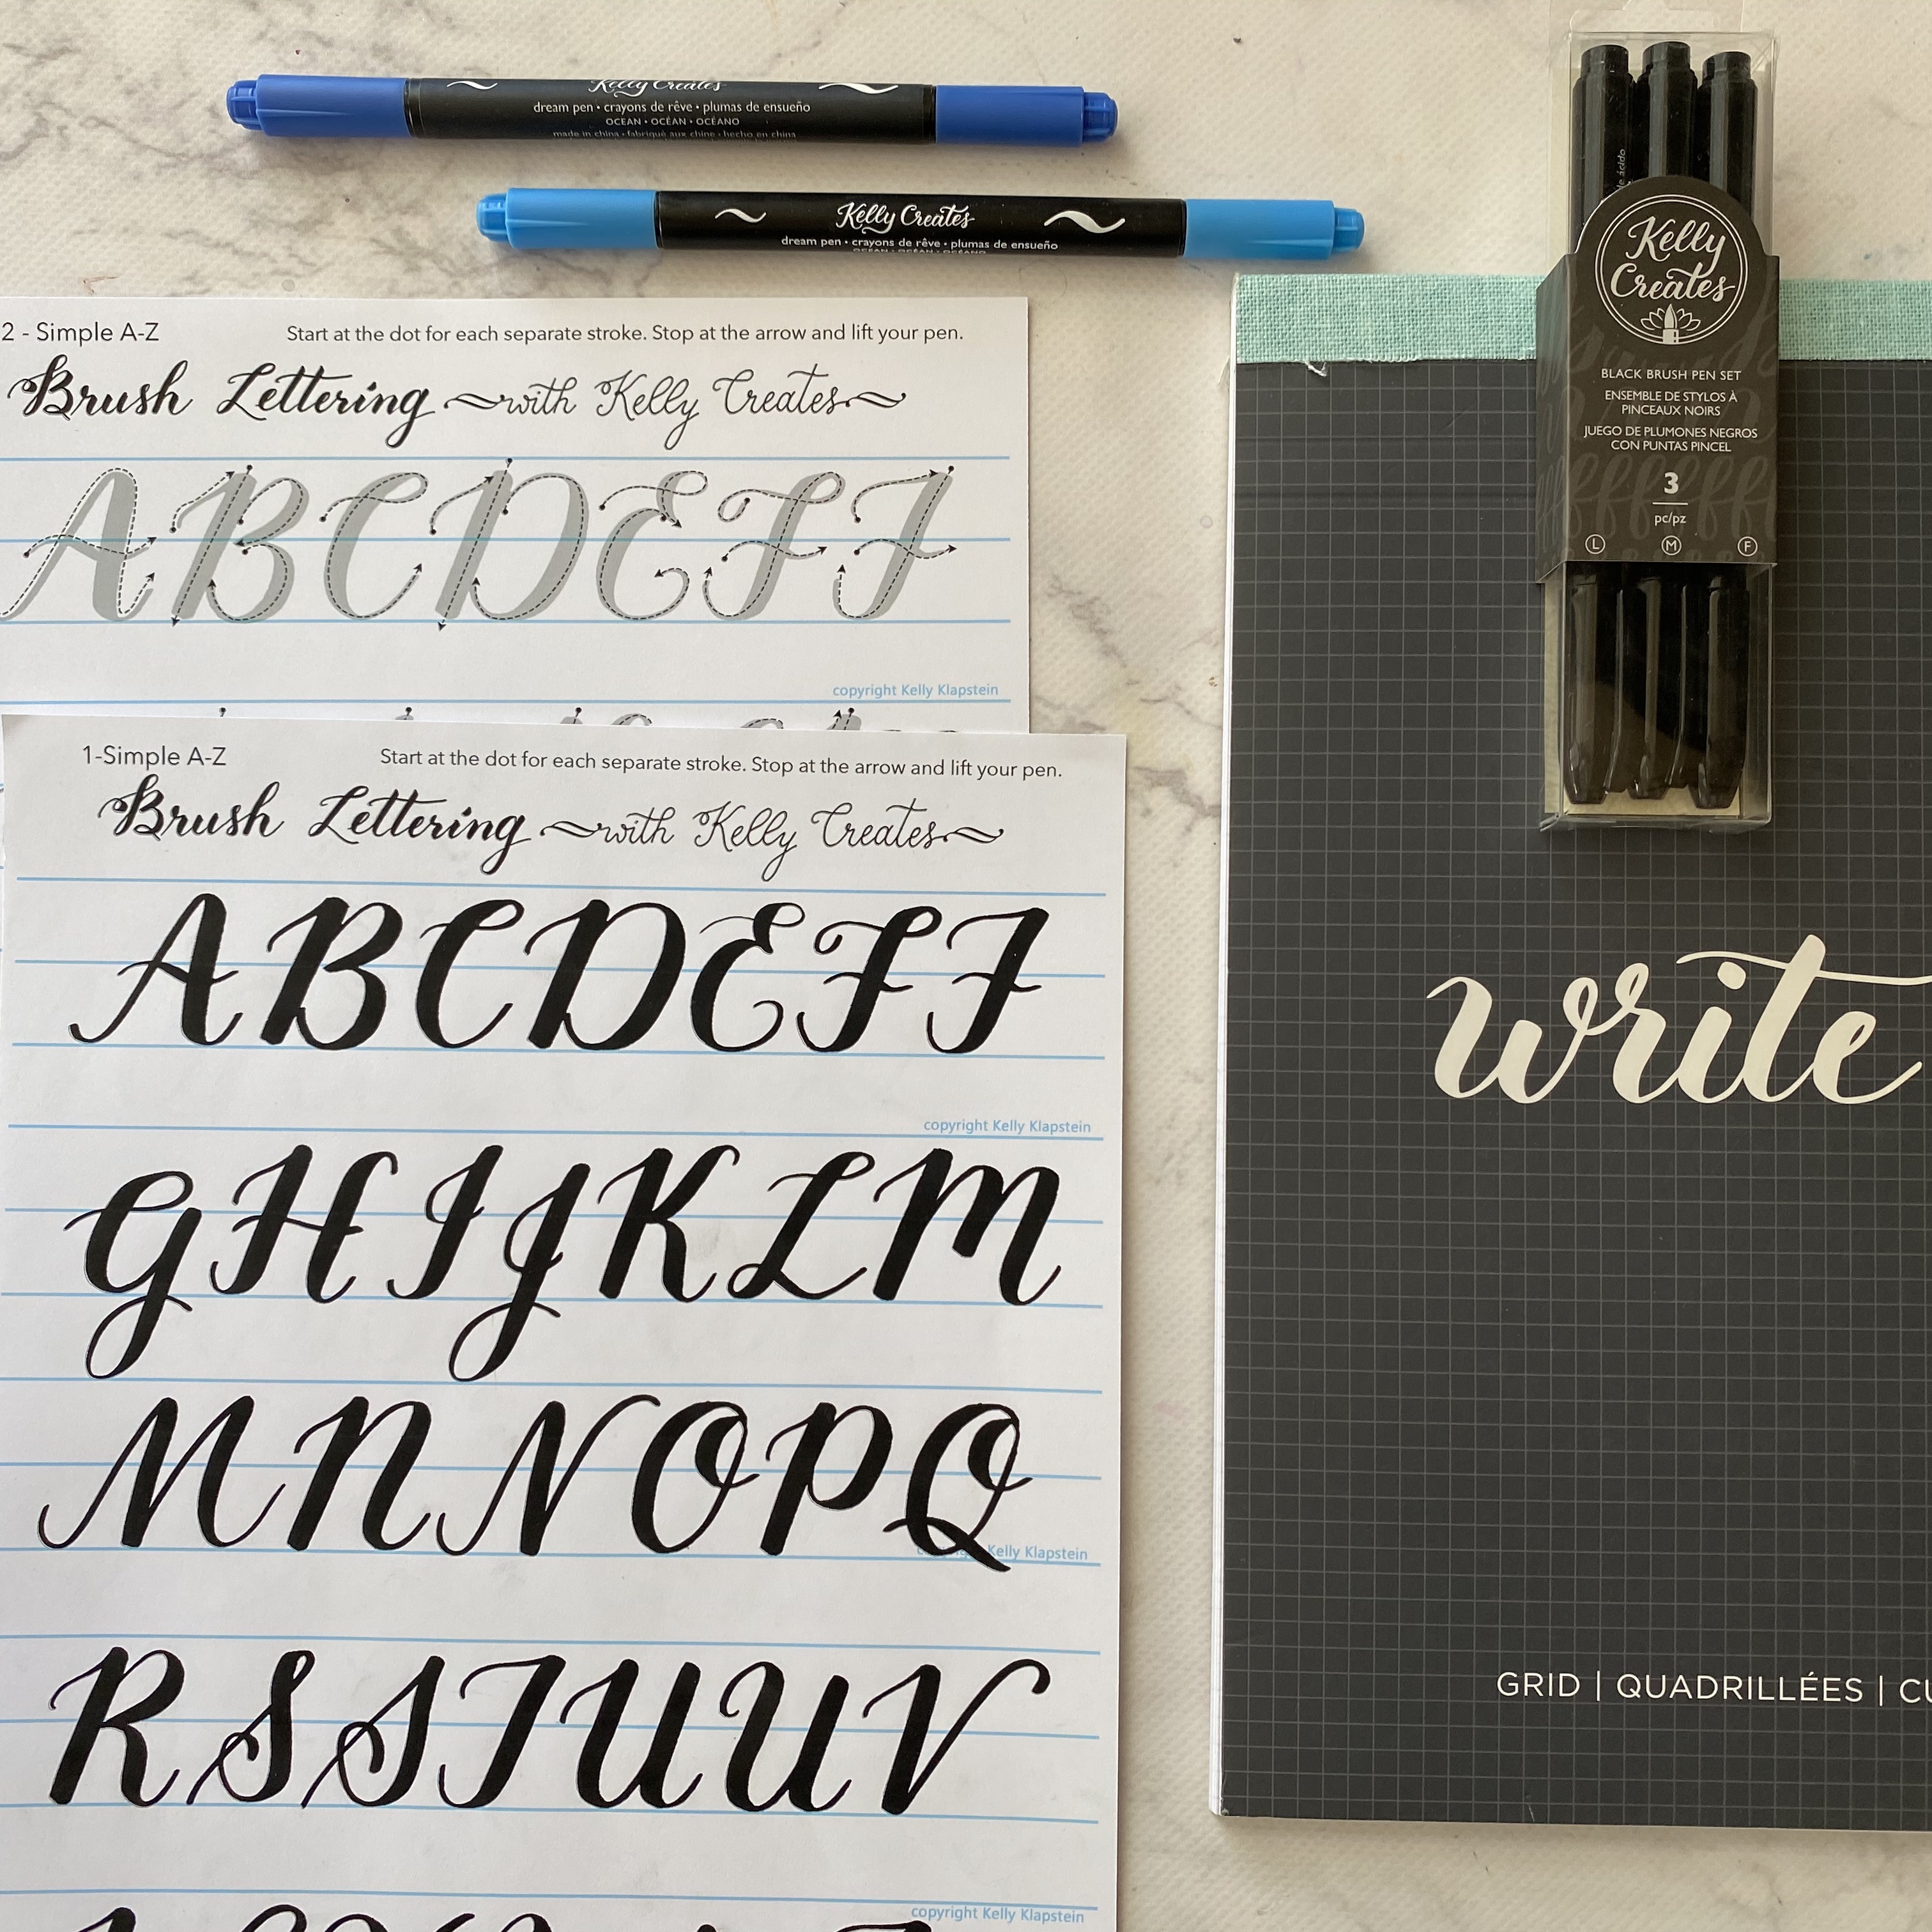 Kelly Creates
dream pen • crayons de rêve • plumas de ensueño
OCEAN • OCÉAN • OCÉANO
made in china • fabriqué aux chine • hecho en china
Kelly Creates
dream pen • crayons de rêve • plumas de ensueño
OCEAN • OCÉAN • OCÉANO
Kelly
Creates
BLACK BRUSH PEN SET
ENSEMBLE DE STYLOS À
PINCEAUX NOIRS
JUEGO DE PLUMONES NEGROS
CON PUNTAS PINCEL
3
pc/pz
L M F
2 - Simple A-Z Start at the dot for each separate stroke. Stop at the arrow and lift your pen.
Brush Lettering with Kelly Creates
A B C D E F F
copyright Kelly Klapstein
1-Simple A-Z Start at the dot for each separate stroke. Stop at the arrow and lift your pen.
Brush Lettering with Kelly Creates
A B C D E F F
copyright Kelly Klapstein
G H I J K L M
M N N O P Q
Kelly Klapstein
R S S T U U V
copyright Kelly Klapstein
write
GRID | QUADRILLÉES |